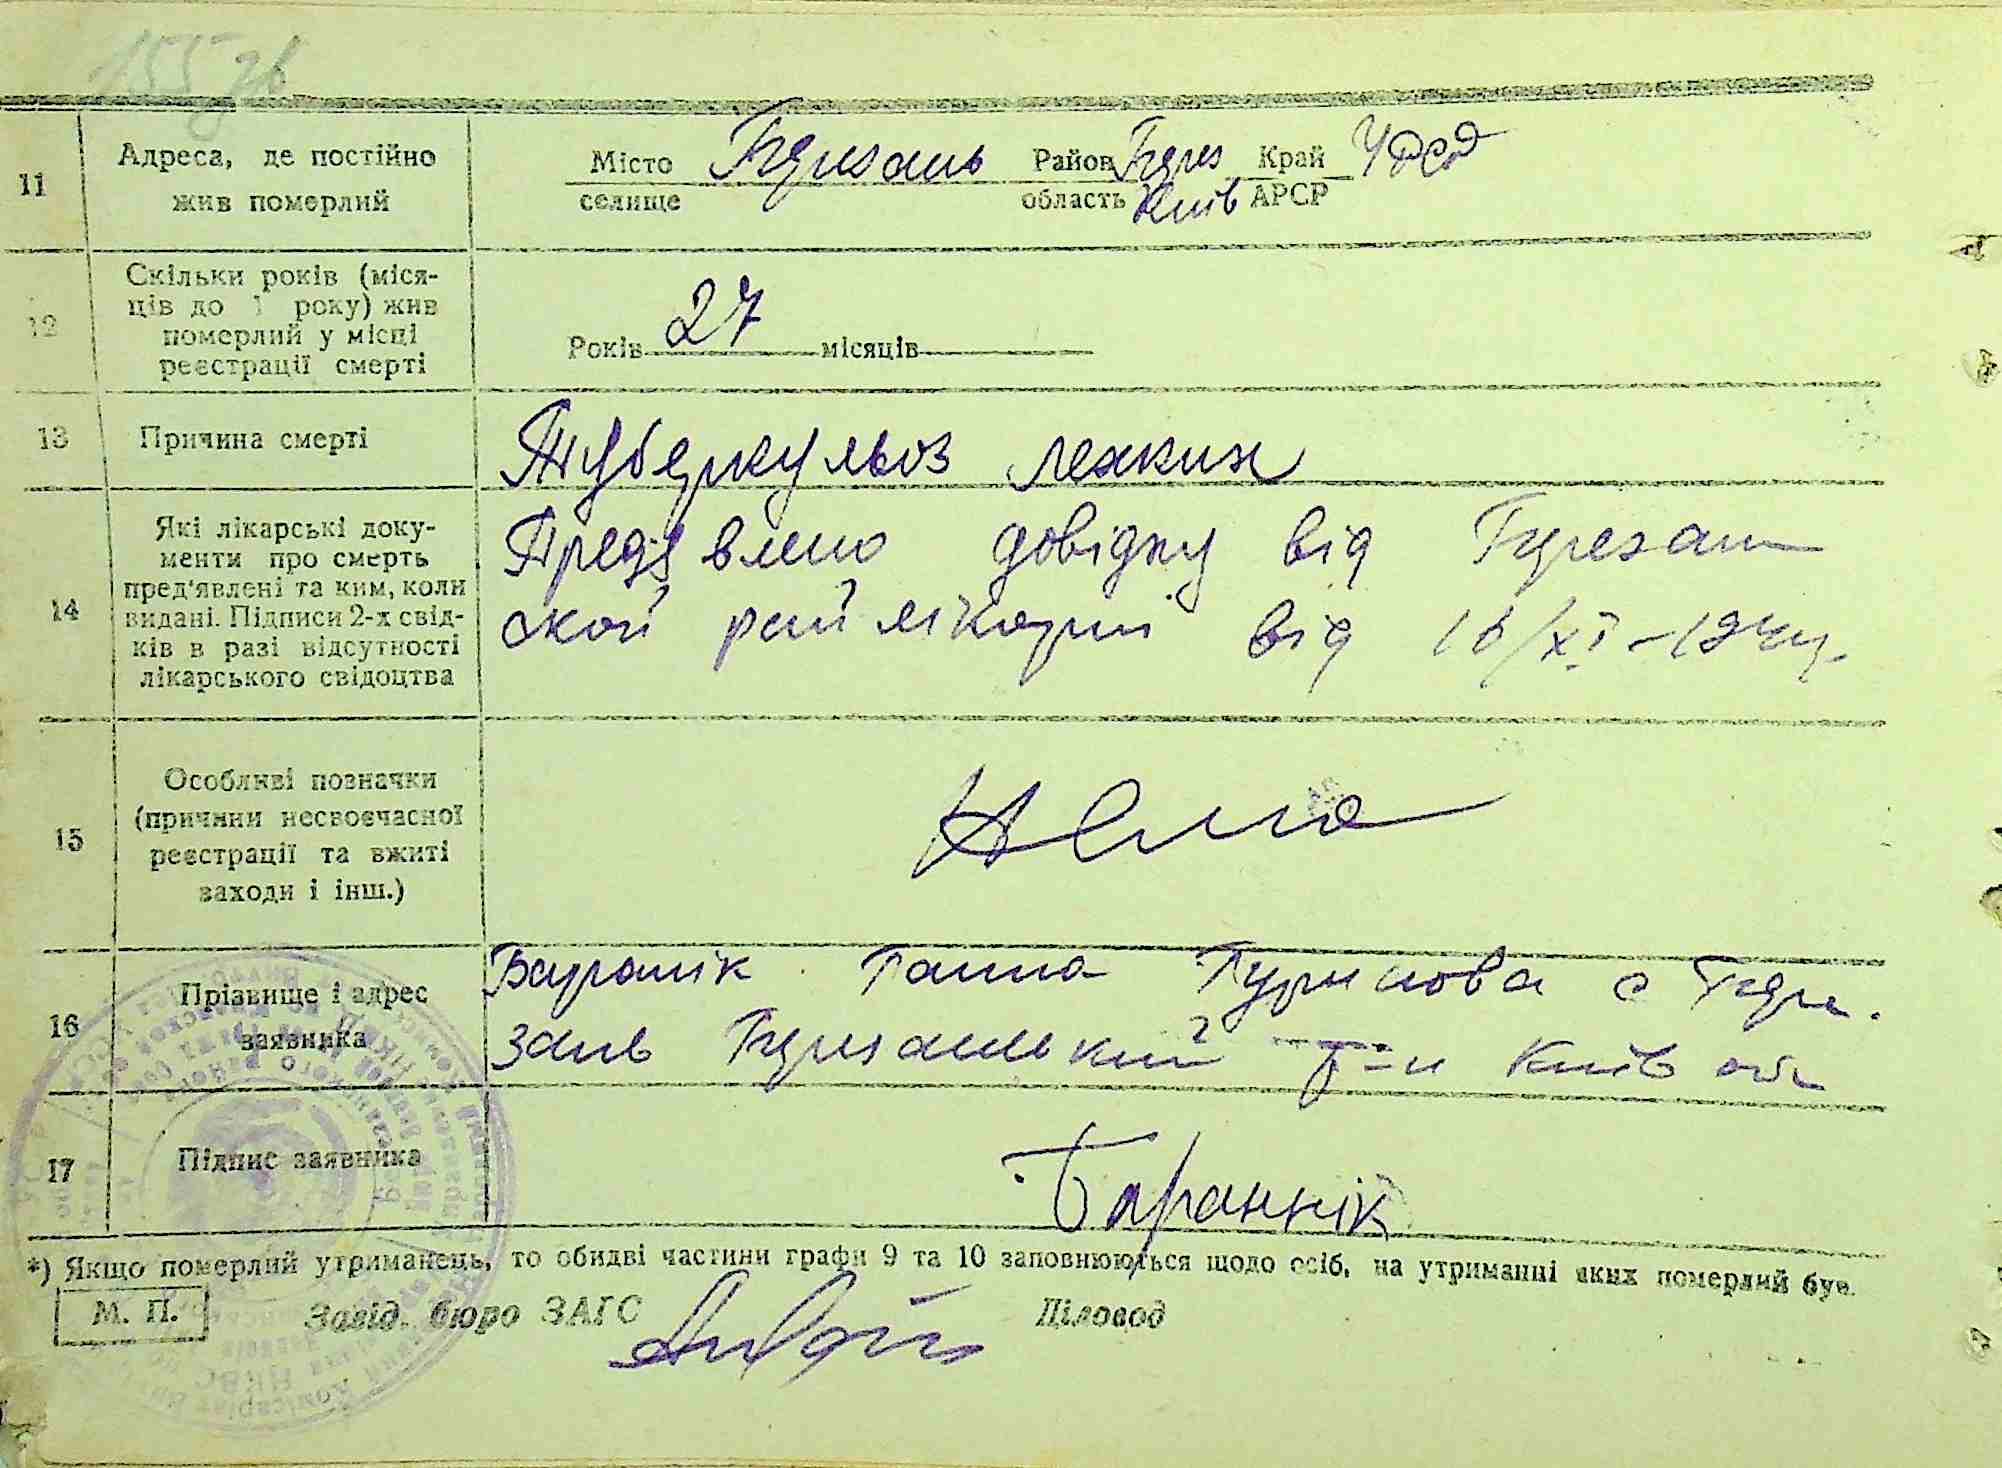 155 зв
11 Адреса, де постійно жив померлий
Місто селище Березань Район Берез Край УРСР
область Київ АРСР
12 Скільки років (міся-
ців до 1 року) жив
померлий у місці
реєстрації смерті
Років 27 місяців
13 Причина смерті
Туберкульоз легких
14 Які лікарські доку-
менти про смерть
пред'явлені та ким, коли
видані. Підписи 2-х свід-
ків в разі відсутності
лікарського свідоцтва
Предявлено довідку від Березан
ской райлікарні від 16/XI-194
15 Особливі позначки
(причини несвоєчасної
реєстрації та вжиті
заходи і інш.)
Нема
16 Прізвище і адрес
заявника
Баранік Ганна с Бере
зань Березанський р-н Київ обл
17 Підпис заявника
Бараннік
*) Якщо померлий утриманець, то обидві частини графи 9 та 10 заповнюються щодо осіб, на утриманні яких померлий був.
М. П. Завід. бюро ЗАГС Діловод